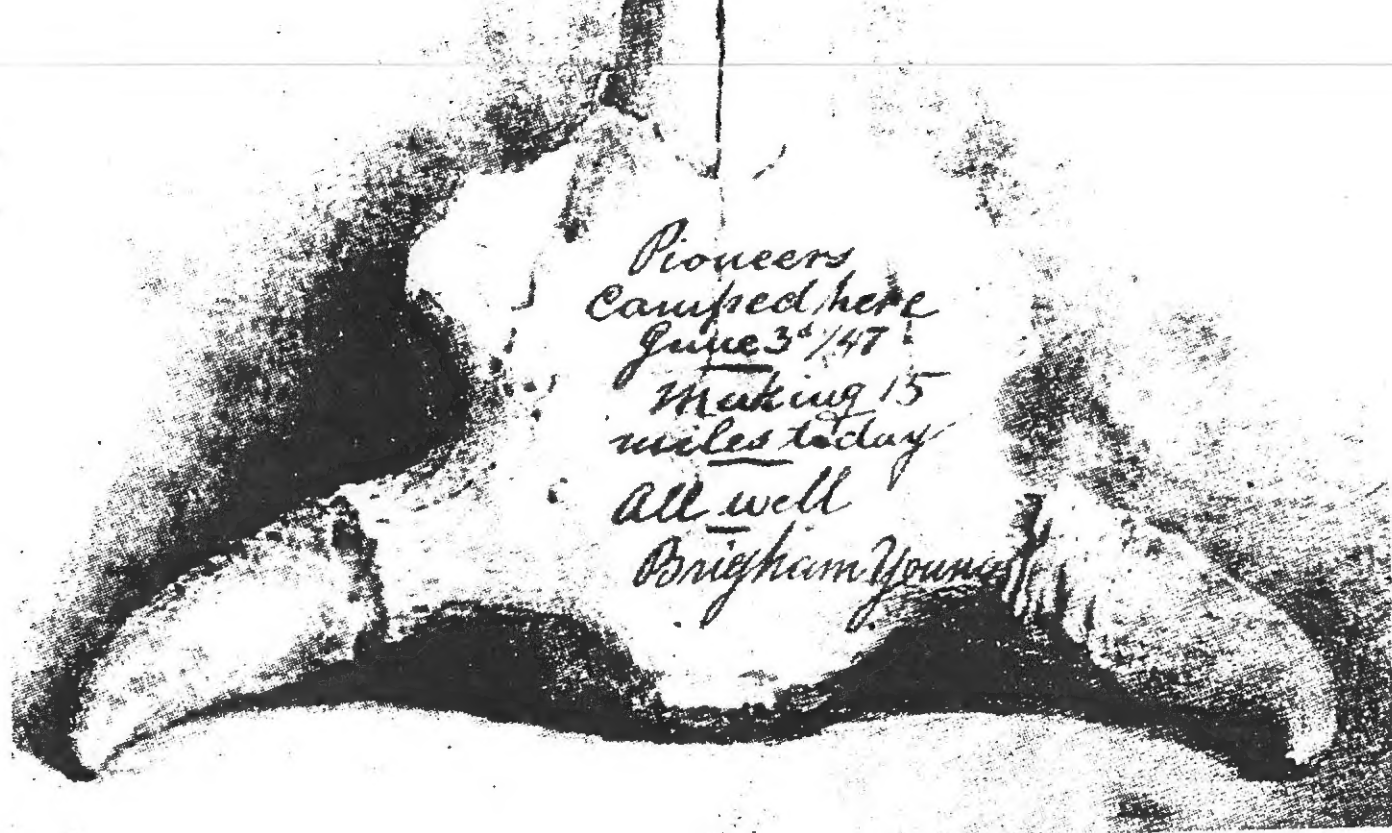 Pioneers
Camped here
June 3d/47
Making 15
miles today
All well
Brigham Young